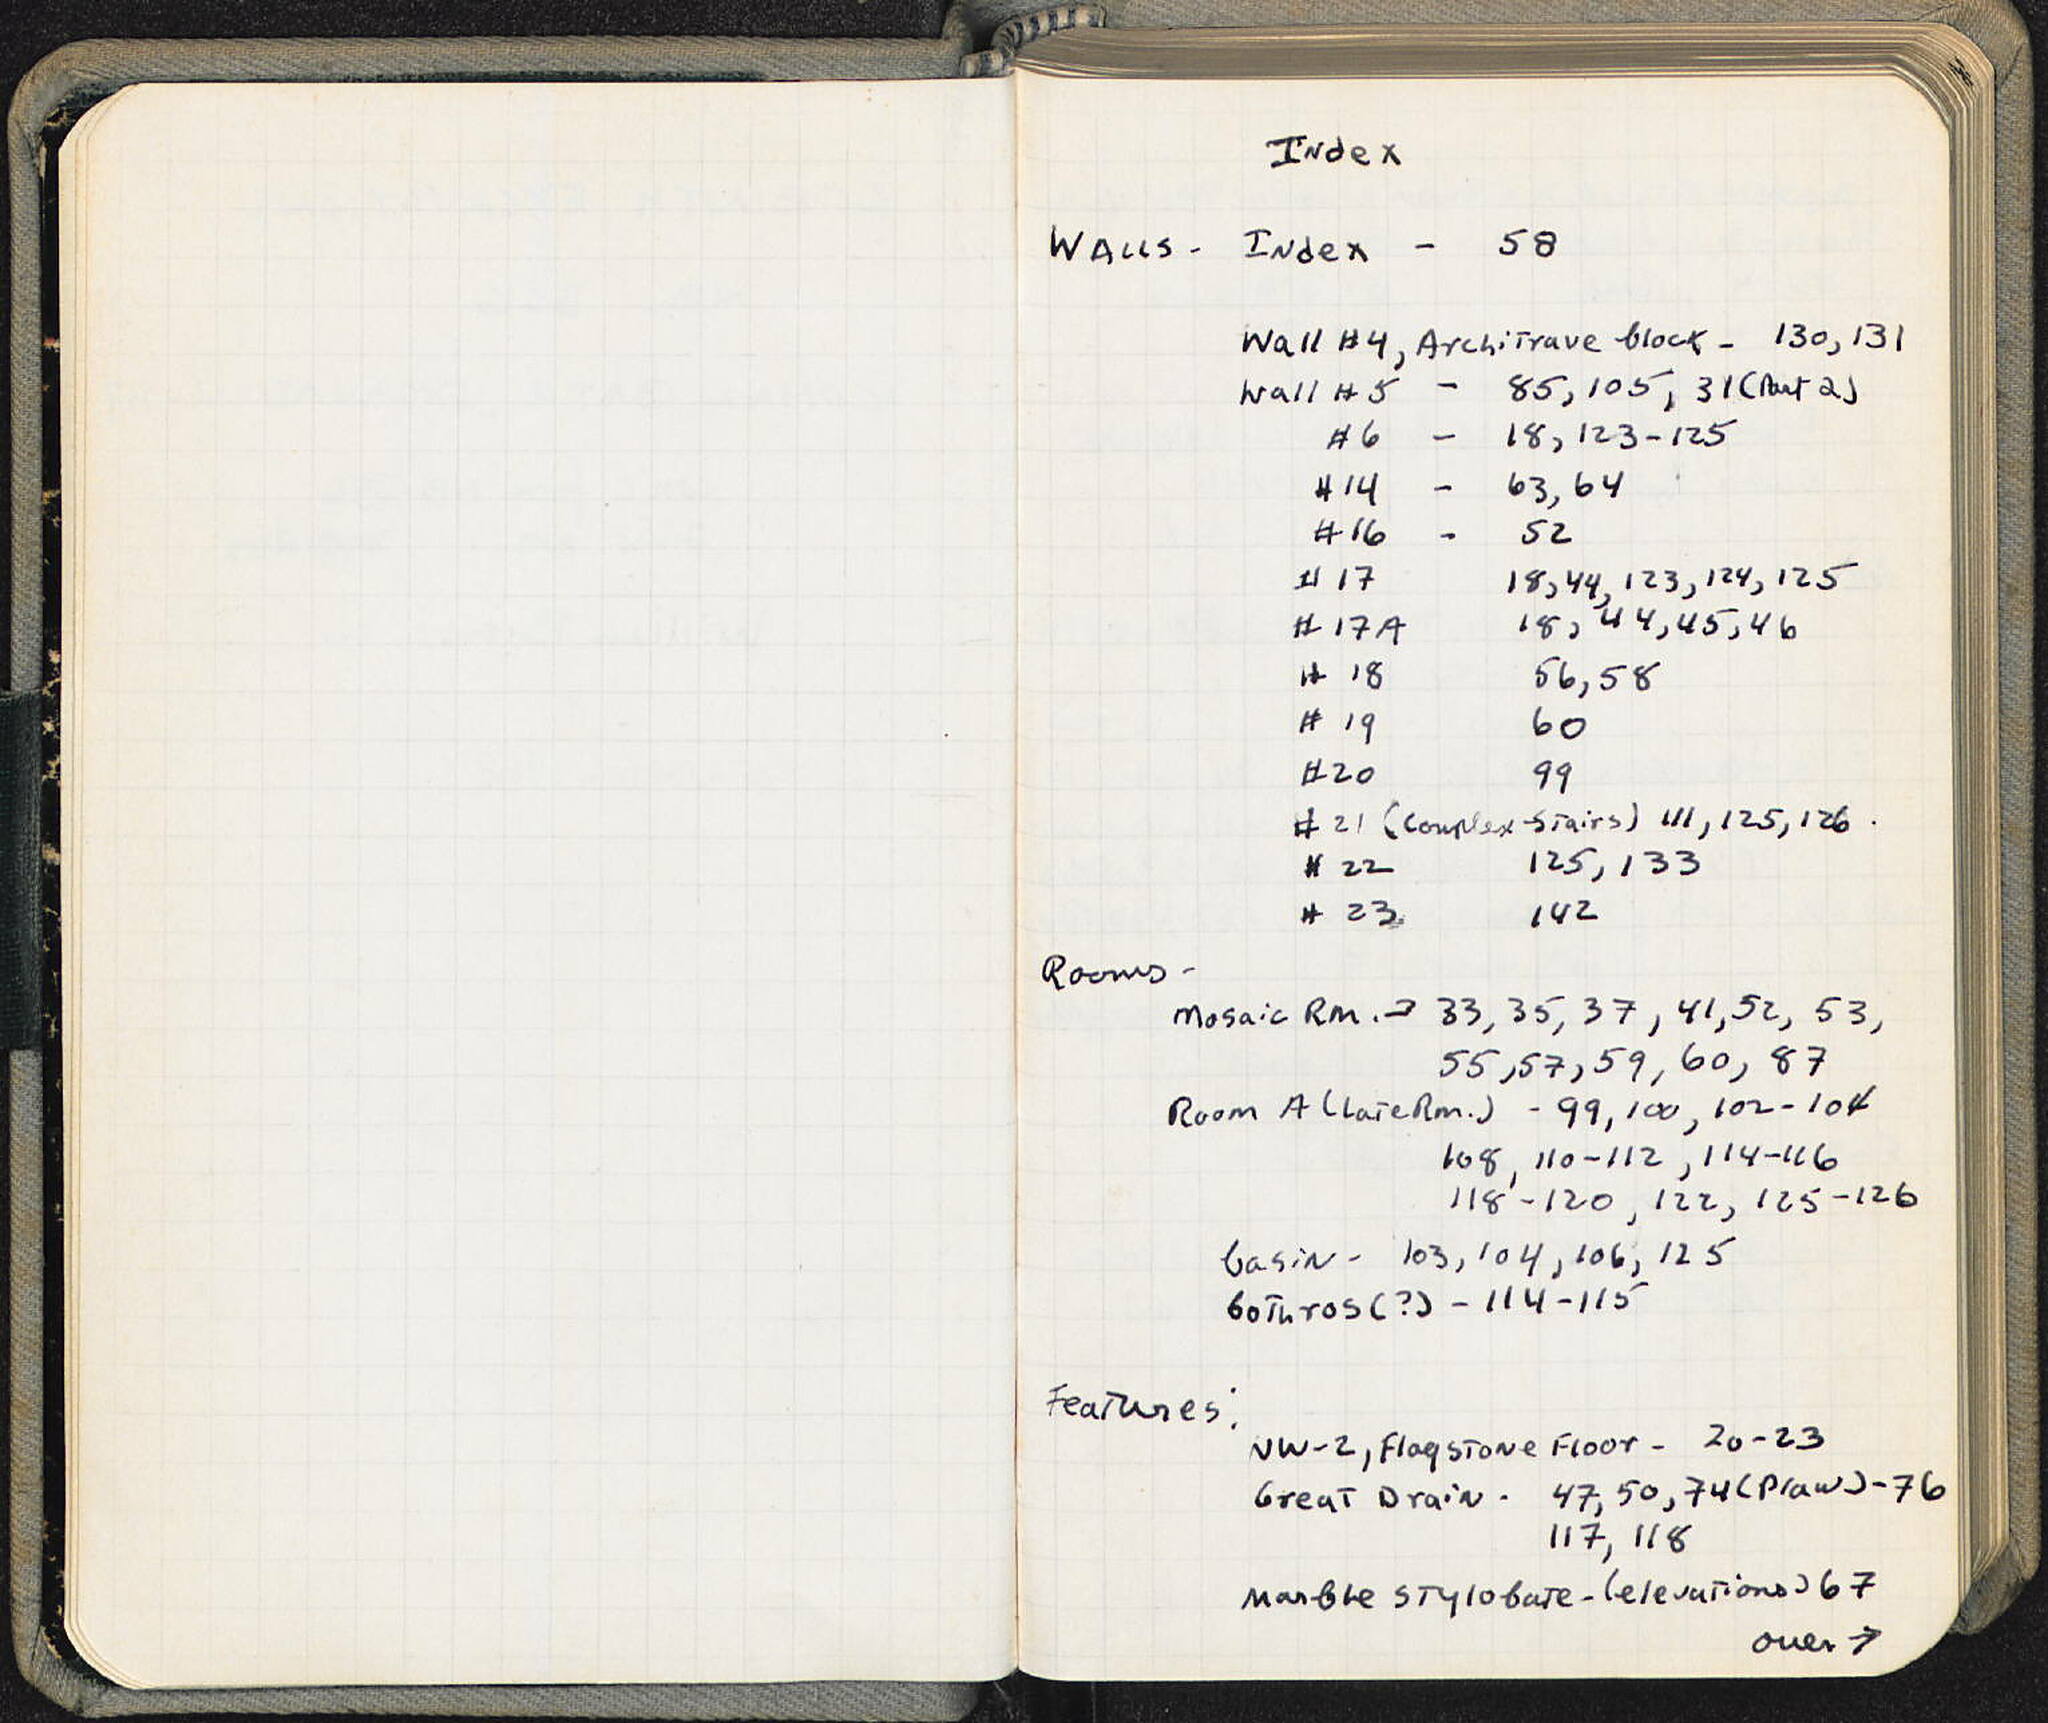 Index
Walls - Index - 58
Wall #4, Architrave block - 130, 131
Wall #5 - 85, 105, 31 (Part 2)
#6 - 18, 123-125
#14 - 63, 64
#16 - 52
#17 18, 44, 123, 124, 125
#17A 18, 44, 45, 46
#18 56, 58
#19 60
#20 99
#21 (Complex Stairs) 111, 125, 126.
#22 125, 133
#23 142
Rooms -
Mosaic Rm. → 33, 35, 37, 41, 52, 53,
55, 57, 59, 60, 87
Room A (Late Rm.) - 99, 100, 102-104
108, 110-112, 114-116
118-120, 122, 125-126
basin - 103, 104, 106, 125
bothros (?) - 114-115
Features:
NW-2, Flagstone Floor - 20-23
Great Drain - 47, 50, 74 (Plan) - 76
117, 118
Marble Stylobate - (elevations) 67
over →